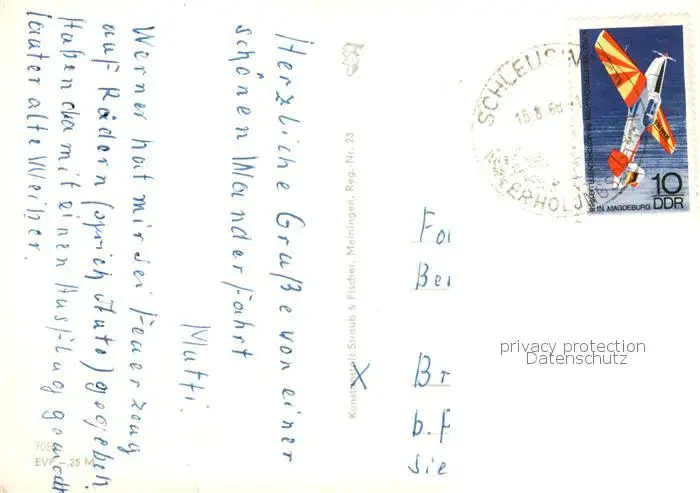 Herzliche Grüße von einer
schönen Wanderfahrt
Mutti.
Werner hat mir sei Feuerzeug
auf Rädern (sprich Auto) gegeben
Haben damit einen Ausflug gemacht
lauter alte Weiber.
Kunstanstalt Straub & Fischer, Meiningen, Reg. Nr. 23
EVP -,25 M
SCHLEUSI
15.8.68
ERHOLUN
IN MAGDEBURG
10
DDR
Be
Br
b.
Sie
privacy protection
Datenschutz